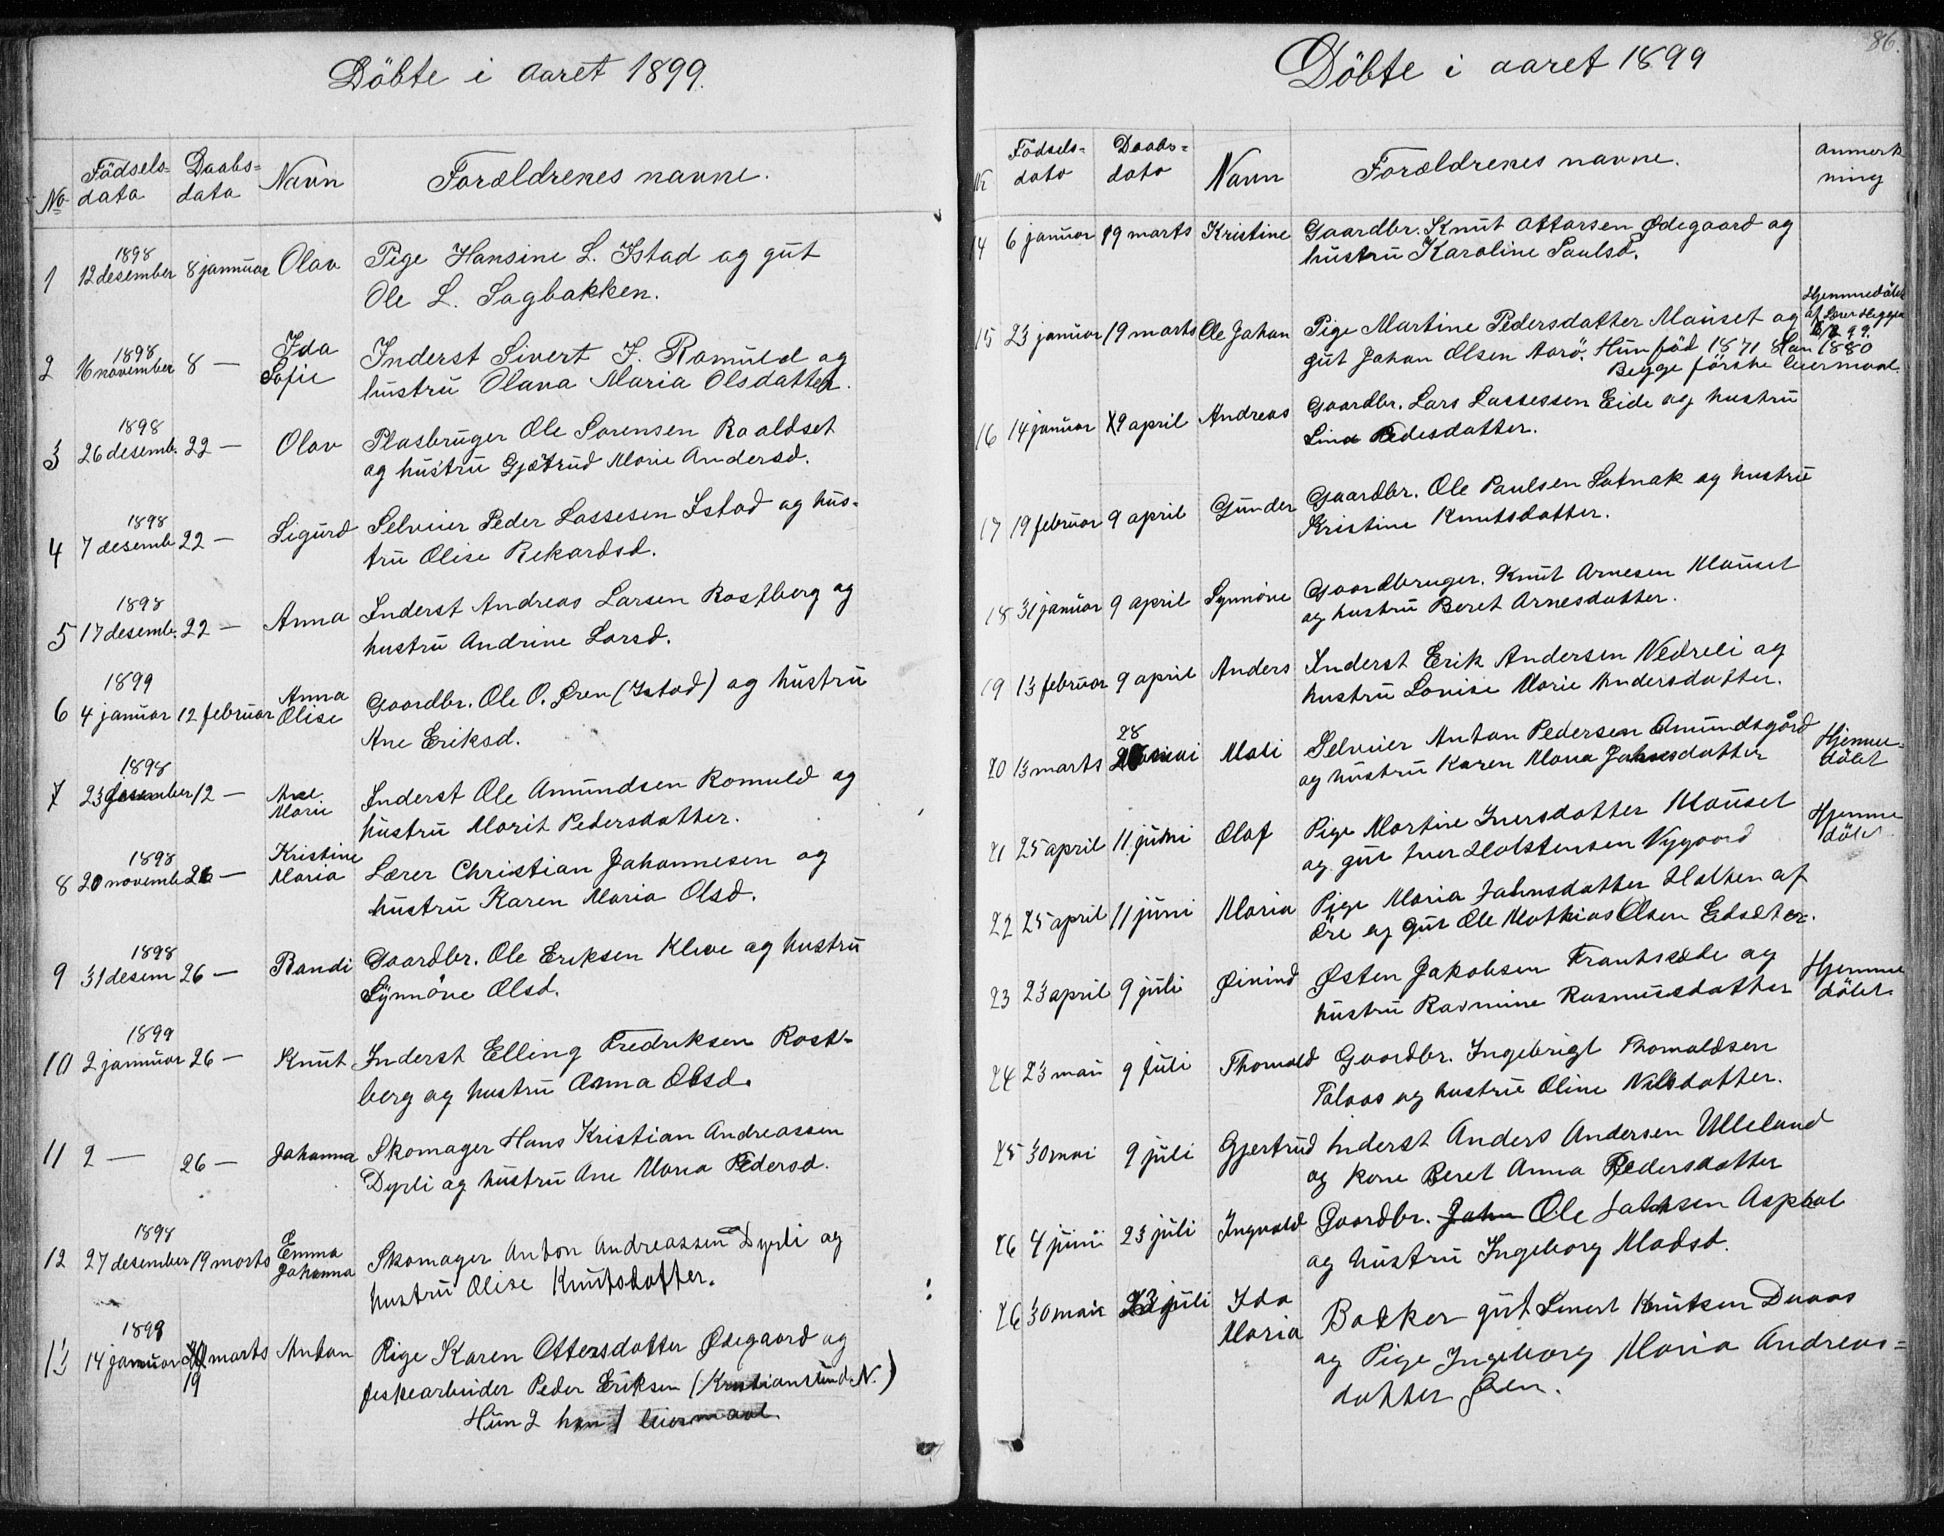 Döbte i aaret 1899.
No Födsels-data Daabs-data Navn Forældrenes navne.
1 1898 12 desember 8 januar Olav Pige Hansine L. Istad og gut
Ole L. Sagbakken.
2 1898 16 november 8 — Ida Sofie Inderst Sivert J. Romuld og
hustru Olava Maria Olsdatter.
3 1898 26 desemb. 22 — Olav Plasbruger Ole Sorensen Roaldset
og hustru Gjetrud Marie Andersd.
4 1898 7 desemb 22 — Sigurd Selveier Peder Lassesen Istad og hus-
tru Olise Rekardsd.
5 1898 17 desemb. 22 — Anna Inderst Andreas Larsen Rostberg og
hustru Andrine Larsd.
6 1899 4 januar 12 februar Anna Olise Gaardbr. Ole O. Øren (Istad) og hustru
Ane Eriksd.
7 1898 23 desember 12 — Ane Marie Inderst Ole Amundsen Romuld og
hustru Marit Pedersdatter.
8 1898 20 novemb 26 — Kristine Maria Lærer Christian Johannesen og
hustru Karen Maria Olsd.
9 1898 31 desem 26 — Randi Gaardbr. Ole Eriksen Kleve og hustru
Synnöve Olsd.
10 1899 2 januar 26 — Knut Inderst Elling Fredriksen Rost-
berg og hustru Anna Olsd.
11 2 — 26 — Johanna Skomager Hans Kristian Andreassen
Dyrli og hustru Ane Maria Pedersd.
12 1898 27 desember 19 marts Emma Johanna Skomager Anton Andreassen Dyrli og
hustru Olise Knutsdatter.
13 1899 14 januar 19 marts Anton Pige Karen Ottersdatter Ødegaard og
fiskearbeider Peder Eriksen (Kristiansund. N.)
Hun 2 han 1 leiermaal.
86.
Döbte i aaret 1899
No Födsels-dato Daabs-dato Navn Forældrenes navne. anmerkning
14 6 januar 19 marts Kristine Gaardbr. Knut Ottarsen Ødegaard og
hustru Karoline Paulsd.
15 23 januar 19 marts Ole Johan Pige Martine Pedersdatter Mauset og Hjemmedöbt af
gut Johan Olsen Aarö. Hun föd 1871 Han 1880
Begge förste leiermaal.
16 14 januar 9 april Andreas Gaardbr. Lars Lassessen Eide og hustru
Lina Pedesdatter.
17 19 februar 9 april Gunder Gaardbr. Ole Paulsen Sotnak og hustru
Kristine Knutsdatter.
18 31 januar 9 april Synnöve Gaardbruger. Knut Arnesen Mauset
og hustru Beret Arnesdatter.
19 13 februar 9 april Anders Inderst Erik Andersen Nedreli og
hustru Lovise Marie Andersdatter.
20 13 marts 28 mai Mali Selveier Anton Pedersen Amundsgård Hjemme-
og hustru Karen Maria Johnsdatter döbt
21 25 april 11 juni Olaf Pige Martine Iversdatter Mauset Hjemme
og gut Iver Holstensen Nygaard döbt
22 25 april 11 juni Maria Pige Maria Johnsdatter Holten af
Öre og gut Ole Mathias Olsen Eidsæter.
23 23 april 9 juli Øivind Østen Jakobsen Frantsæde og Hjemme
hustru Rasmine Rasmusdatter döbt
24 23 mai 9 juli Thorvald Gaardbr. Ingebrigt Thomaldsen
Talaas og hustru Oline Nilsdatter.
25 30 mai 9 juli Gjertrud Inderst Anders Andersen Ulleland
og kone Beret Anna Pedersdatter
26 4 juni 23 juli Ingvald Gaardbr. John Ole Johnsen Asphol
og hustru Ingeborg Madsd.
26 30 mai 23 juli Ida Maria Bakker gut Sivert Knutsen Duaas
og Pige Ingeborg Maria Andreas-
datter Øren.